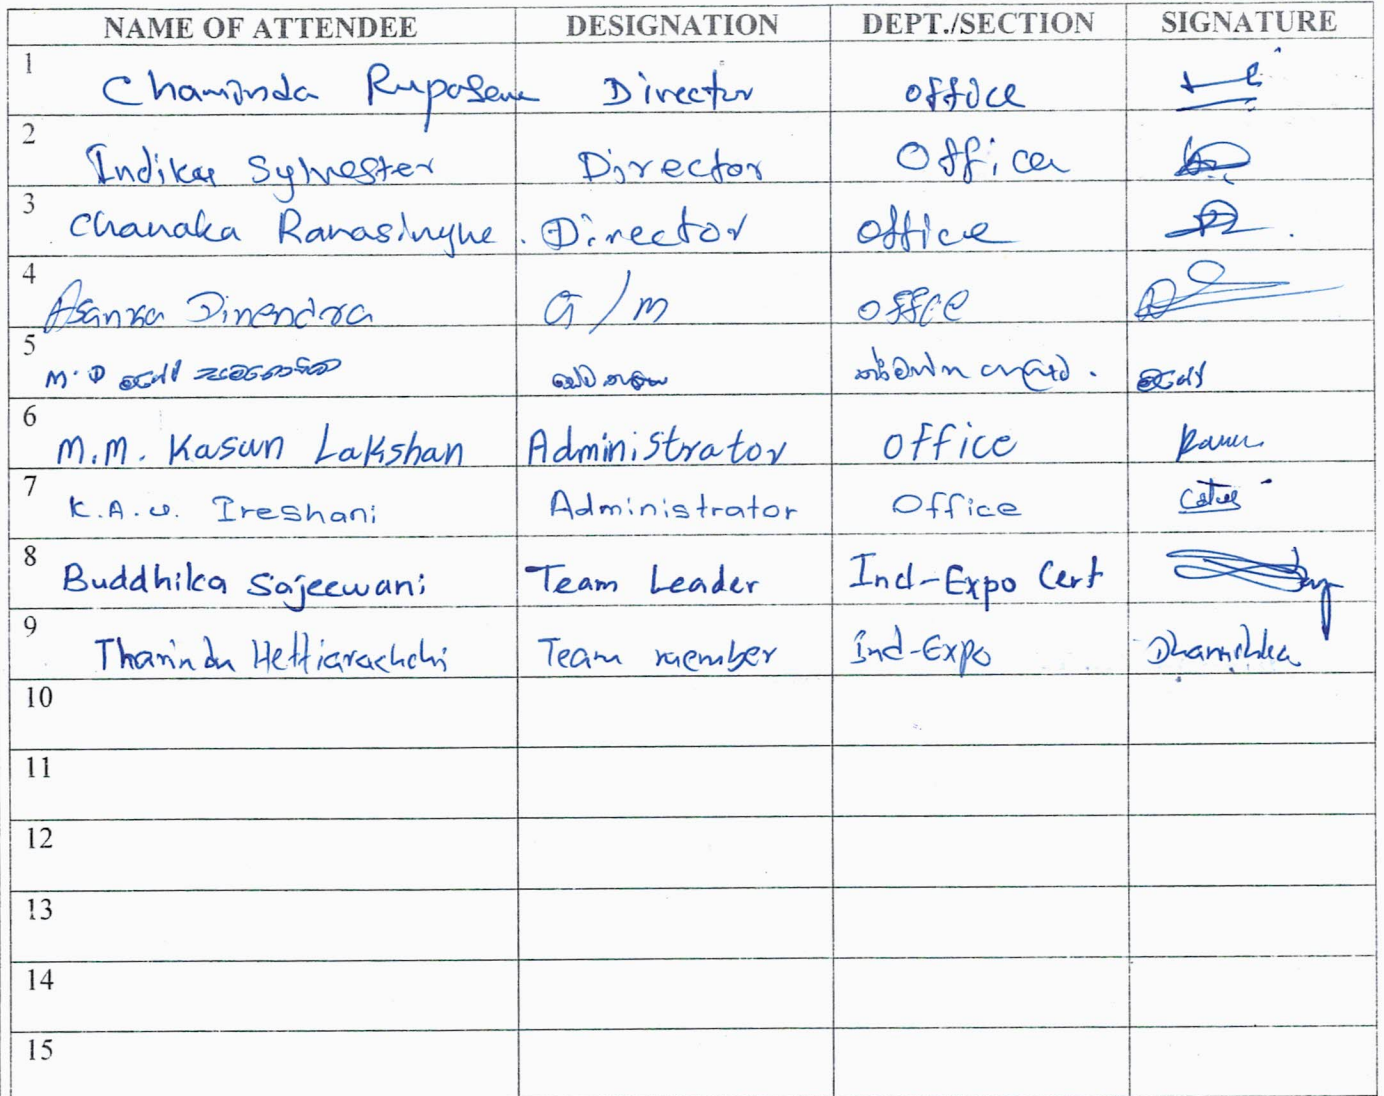 NAME OF ATTENDEE DESIGNATION DEPT./SECTION SIGNATURE
1 Chaminda Rupasena Director office
2 Indika Sylvester Director Office
3 Chanaka Ranasinghe. Director office
4 Asanka Dinendra G/M office
5 M.D
6 M.M. Kasun Lakshan Administrator office
7 K.A.U. Ireshani Administrator Office
8 Buddhika Sajeewani Team Leader Ind-Expo Cert
9 Tharindu Hettiarachchi Team member Ind-Expo
10
11
12
13
14
15